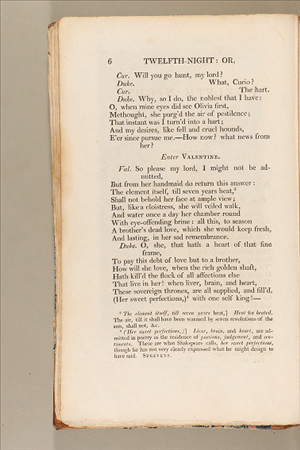 6 TWELFTH-NIGHT: OR,
Cur. Will you go hunt, my lord?
Duke. What, Curio?
Cur. The hart.
Duke. Why, so I do, the noblest that I have:
O, when mine eyes did see Olivia first,
Methought, she purg'd the air of pestilence;
That instant was I turn'd into a hart;
And my desires, like fell and cruel hounds,
E'er since pursue me.—How now? what news from
her?
Enter VALENTINE.
Val. So please my lord, I might not be ad-
mitted,
But from her handmaid do return this answer:
The element itself, till seven years heat,⁴
Shall not behold her face at ample view;
But, like a cloistress, she will veiled walk,
And water once a day her chamber round
With eye-offending brine: all this, to season
A brother's dead love, which she would keep fresh,
And lasting, in her sad remembrance.
Duke. O, she, that hath a heart of that fine
frame,
To pay this debt of love but to a brother,
How will she love, when the rich golden shaft,
Hath kill'd the flock of all affections else
That live in her! when liver, brain, and heart,
These sovereign thrones, are all supplied, and fill'd,
(Her sweet perfections,)⁵ with one self king!—
⁴ The element itself, till seven years heat,] Heat for heated.
The air, till it shall have been warmed by seven revolutions of the
sun, shall not, &c.
⁵ (Her sweet perfections,)] Liver, brain, and heart, are ad-
mitted in poetry as the residence of passions, judgement, and sen-
timents. These are what Shakspeare calls, her sweet perfections,
though he has not very clearly expressed what he might design to
have said. STEEVENS.